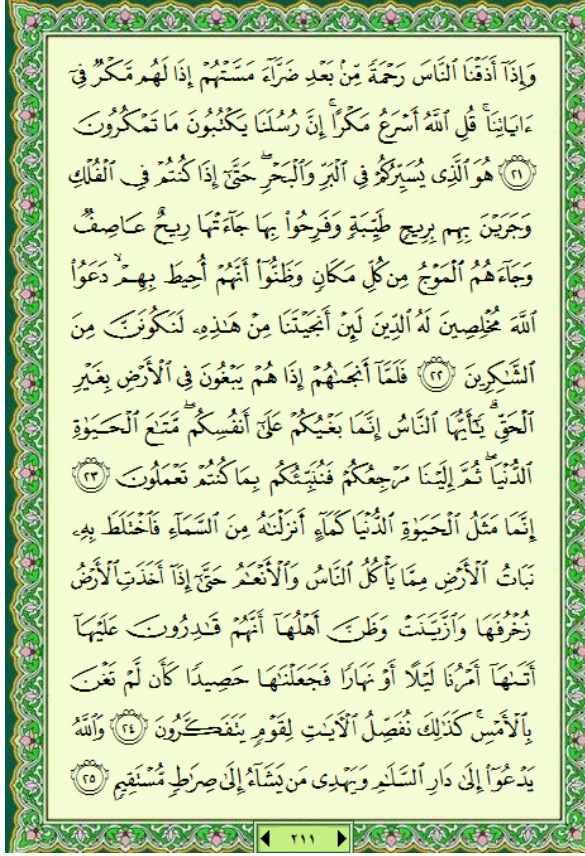 وَإِذَآ أَذَقۡنَا ٱلنَّاسَ رَحۡمَةٗ مِّنۢ بَعۡدِ ضَرَّآءَ مَسَّتۡهُمۡ إِذَا لَهُم مَّكۡرٞ فِيٓ
ءَايَاتِنَاۚ قُلِ ٱللَّهُ أَسۡرَعُ مَكۡرًاۚ إِنَّ رُسُلَنَا يَكۡتُبُونَ مَا تَمۡكُرُونَ
٢١ هُوَ ٱلَّذِي يُسَيِّرُكُمۡ فِي ٱلۡبَرِّ وَٱلۡبَحۡرِۖ حَتَّىٰٓ إِذَا كُنتُمۡ فِي ٱلۡفُلۡكِ
وَجَرَيۡنَ بِهِم بِرِيحٖ طَيِّبَةٖ وَفَرِحُواْ بِهَا جَآءَتۡهَا رِيحٌ عَاصِفٞ
وَجَآءَهُمُ ٱلۡمَوۡجُ مِن كُلِّ مَكَانٖ وَظَنُّوٓاْ أَنَّهُمۡ أُحِيطَ بِهِمۡۙ دَعَوُاْ
ٱللَّهَ مُخۡلِصِينَ لَهُ ٱلدِّينَ لَئِنۡ أَنجَيۡتَنَا مِنۡ هَٰذِهِۦ لَنَكُونَنَّ مِنَ
ٱلشَّٰكِرِينَ ٢٢ فَلَمَّآ أَنجَىٰهُمۡ إِذَا هُمۡ يَبۡغُونَ فِي ٱلۡأَرۡضِ بِغَيۡرِ
ٱلۡحَقِّۗ يَٰٓأَيُّهَا ٱلنَّاسُ إِنَّمَا بَغۡيُكُمۡ عَلَىٰٓ أَنفُسِكُمۖ مَّتَٰعَ ٱلۡحَيَوٰةِ
ٱلدُّنۡيَاۖ ثُمَّ إِلَيۡنَا مَرۡجِعُكُمۡ فَنُنَبِّئُكُم بِمَا كُنتُمۡ تَعۡمَلُونَ ٢٣
إِنَّمَا مَثَلُ ٱلۡحَيَوٰةِ ٱلدُّنۡيَا كَمَآءٍ أَنزَلۡنَٰهُ مِنَ ٱلسَّمَآءِ فَٱخۡتَلَطَ بِهِۦ
نَبَاتُ ٱلۡأَرۡضِ مِمَّا يَأۡكُلُ ٱلنَّاسُ وَٱلۡأَنۡعَٰمُ حَتَّىٰٓ إِذَآ أَخَذَتِ ٱلۡأَرۡضُ
زُخۡرُفَهَا وَٱزَّيَّنَتۡ وَظَنَّ أَهۡلُهَآ أَنَّهُمۡ قَٰدِرُونَ عَلَيۡهَآ
أَتَىٰهَآ أَمۡرُنَا لَيۡلًا أَوۡ نَهَارٗا فَجَعَلۡنَٰهَا حَصِيدٗا كَأَن لَّمۡ تَغۡنَ
بِٱلۡأَمۡسِۚ كَذَٰلِكَ نُفَصِّلُ ٱلۡأٓيَٰتِ لِقَوۡمٖ يَتَفَكَّرُونَ ٢٤ وَٱللَّهُ
يَدۡعُوٓاْ إِلَىٰ دَارِ ٱلسَّلَٰمِ وَيَهۡدِي مَن يَشَآءُ إِلَىٰ صِرَٰطٖ مُّسۡتَقِيمٖ ٢٥
٢١١